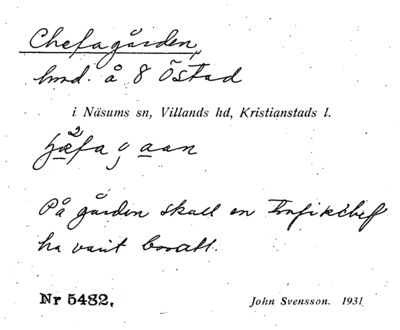 Chefagården,
hmd. å 8 Östad
i Näsums sn, Villands hd, Kristianstads l.
På gården skall en trafikchef
ha varit bosatt.
Nr 5482.
John Svensson. 1931